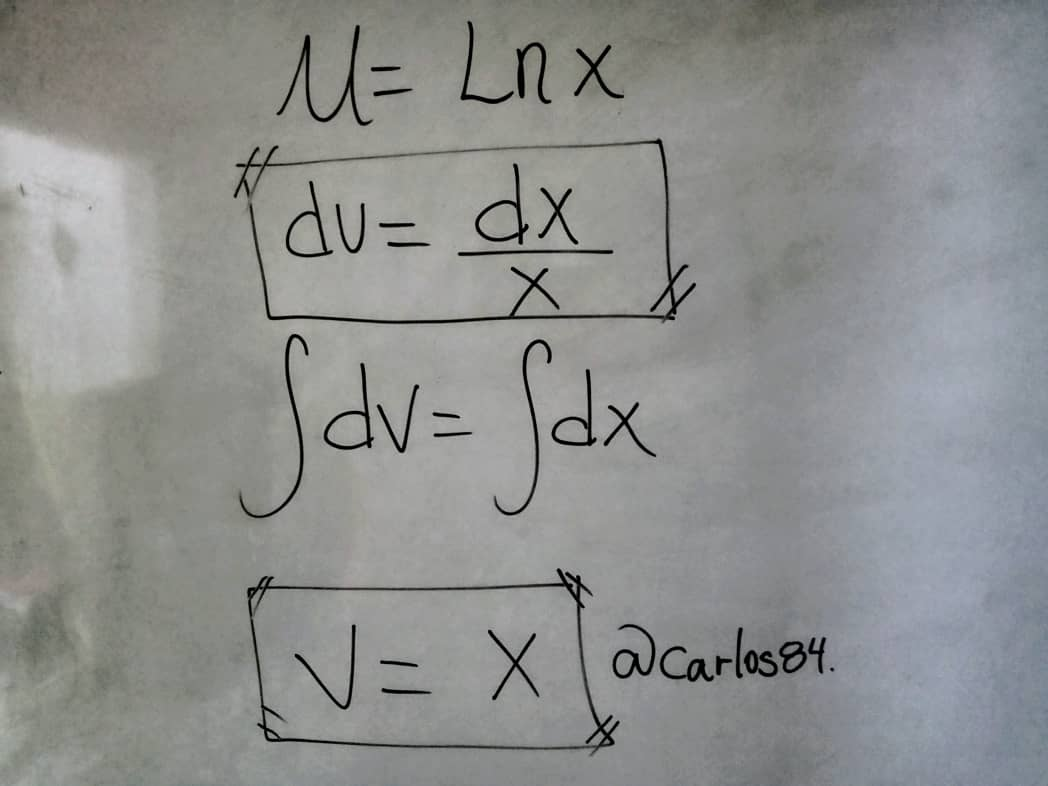 u= Lnx
du= dx/x
∫dv= ∫dx
v= x @Carlos84.